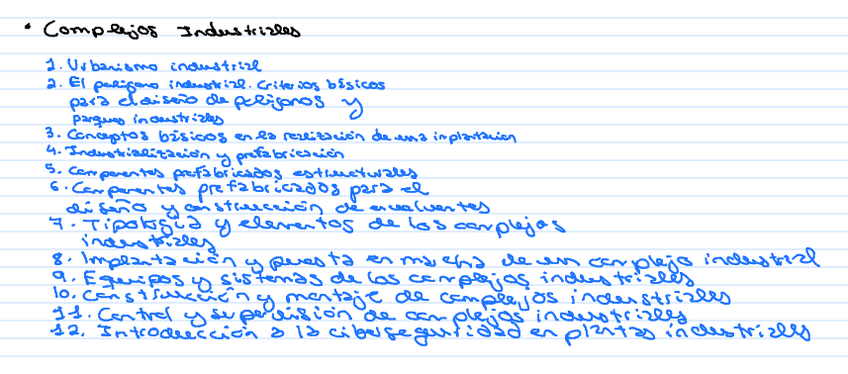 • Complejos Industriales
1. Urbanismo industrial
2. El polígono industrial. Criterios básicos
para el diseño de polígonos y
parques industriales
3. Conceptos básicos en la realización de una implantación
4. Industrialización y prefabricación
5. Componentes prefabricados estructurales
6. Componentes prefabricados para el
diseño y construcción de envolventes
7. Tipología y elementos de los complejos
industriales
8. Implantación y puesta en marcha de un complejo industrial
9. Equipos y sistemas de los complejos industriales
10. Construcción y montaje de complejos industriales
11. Control y supervisión de complejos industriales
12. Introducción a la ciberseguridad en plantas industriales